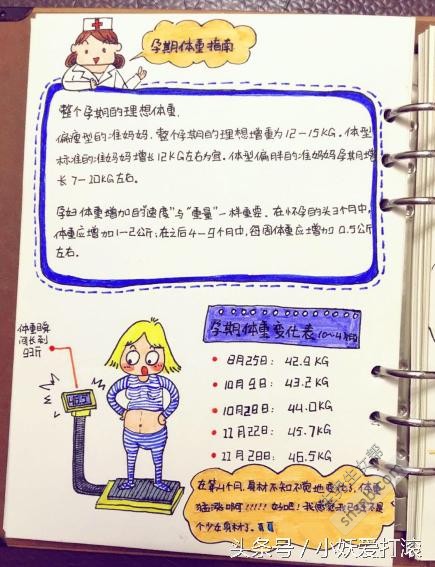 孕期体重指南
整个孕期的理想体重.
偏瘦型的准妈妈.整个孕期的理想增重为12-15KG.体型
标准的准妈妈增长12KG左右为宜.体型偏胖的准妈妈孕期增
长7-10KG左右.
孕妇体重增加的"速度"与"重量"一样重要.在怀孕的头3个月中,
体重应增加1-2公斤;在之后4-9个月中,每周体重应增加0.5公斤
左右.
体重瞬
间长到
93斤
46.5
孕期体重变化表
8月25日: 42.9KG
10月9日: 43.2KG
10月28日: 44.0KG
11月22日: 45.7KG
11月28日: 46.5KG
在第4个月.身材不知不觉地变化了.体重
猛涨啊!!!!! 好吧! 我感觉我已经不是
个少女身材了.
头条号 / 小妖爱打滚